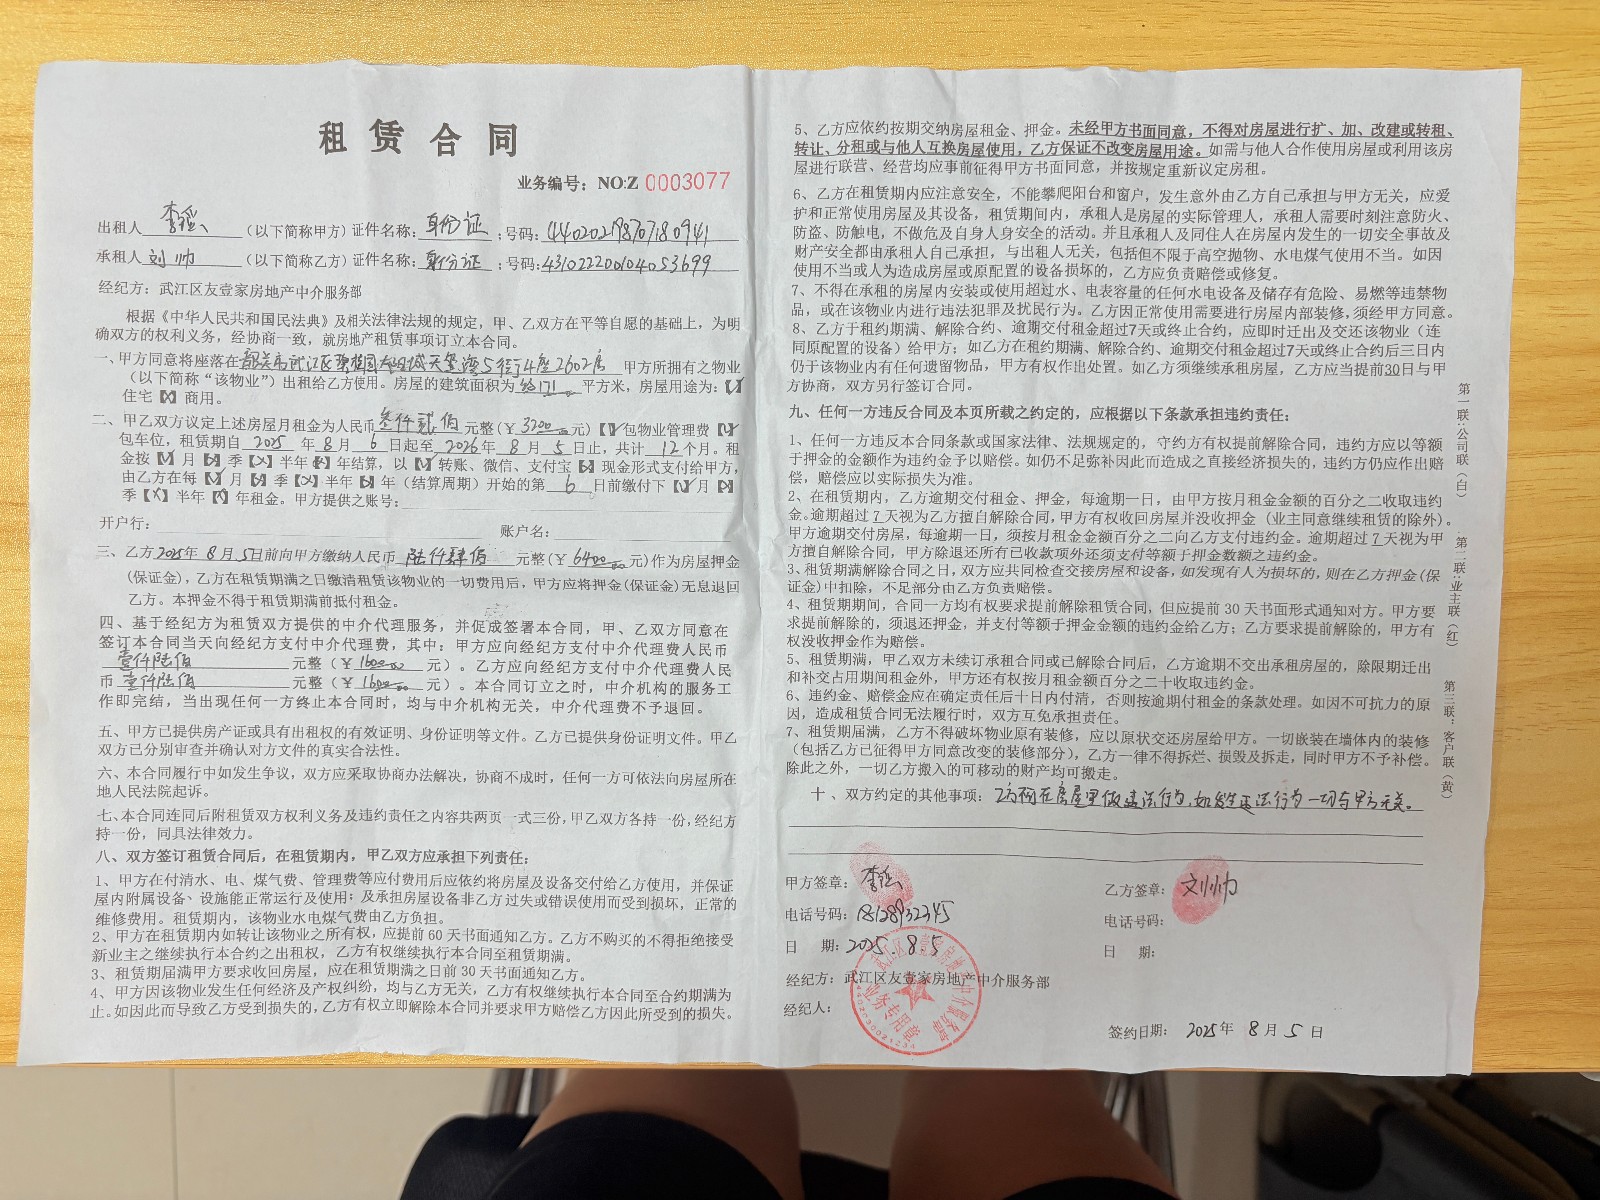 租赁合同
业务编号：NO:Z 0003077
出租人 李 （以下简称甲方）证件名称：身份证；号码：440202198707180941
承租人 刘帅 （以下简称乙方）证件名称：身份证；号码：431022200104053699
经纪方：武江区友壹家房地产中介服务部
根据《中华人民共和国民法典》及相关法律法规的规定，甲、乙双方在平等自愿的基础上，为明
确双方的权利义务，经协商一致，就房地产租赁事项订立本合同。
一、甲方同意将座落在韶关市武江区碧桂园太阳城天玺湾5街4座2602房 甲方所拥有之物业
（以下简称“该物业”）出租给乙方使用。房屋的建筑面积为 171 平方米，房屋用途为：【√】
住宅【X】商用。
二、甲乙双方议定上述房屋月租金为人民币 叁仟贰佰 元整(￥3200元)【√】包物业管理费【√】
包车位，租赁期自 2025 年 8 月 6 日起至 2026 年 8 月 5 日止，共计 12 个月。租
金按【√】月【X】季【X】半年【X】年结算，以【√】转账、微信、支付宝【X】现金形式支付给甲方，
由乙方在每【√】月【X】季【X】半年【X】年（结算周期）开始的第 6 日前缴付下【√】月【X】
季【X】半年【X】年租金。甲方提供之账号：
开户行： 账户名：
三、乙方2025年8月5日前向甲方缴纳人民币 陆仟肆佰 元整(￥6400.00元)作为房屋押金
(保证金)，乙方在租赁期满之日缴清租赁该物业的一切费用后，甲方应将押金(保证金)无息退回
乙方。本押金不得于租赁期满前抵付租金。
四、基于经纪方为租赁双方提供的中介代理服务，并促成签署本合同，甲、乙双方同意在
签订本合同当天向经纪方支付中介代理费，其中：甲方应向经纪方支付中介代理费人民币
壹仟陆佰 元整（￥1600.00 元）。乙方应向经纪方支付中介代理费人民
币 壹仟陆佰 元整（￥1600.00 元）。本合同订立之时，中介机构的服务工
作即完结，当出现任何一方终止本合同时，均与中介机构无关，中介代理费不予退回。
五、甲方已提供房产证或具有出租权的有效证明、身份证明等文件。乙方已提供身份证明文件。甲乙
双方已分别审查并确认对方文件的真实合法性。
六、本合同履行中如发生争议，双方应采取协商办法解决，协商不成时，任何一方可依法向房屋所在
地人民法院起诉。
七、本合同连同后附租赁双方权利义务及违约责任之内容共两页一式三份，甲乙双方各持一份，经纪方
持一份，同具法律效力。
八、双方签订租赁合同后，在租赁期内，甲乙双方应承担下列责任：
1、甲方在付清水、电、煤气费、管理费等应付费用后应依约将房屋及设备交付给乙方使用，并保证
屋内附属设备、设施能正常运行及使用；及承担房屋设备非乙方过失或错误使用而受到损坏，正常的
维修费用。租赁期内，该物业水电煤气费由乙方负担。
2、甲方在租赁期内如转让该物业之所有权，应提前60天书面通知乙方。乙方不购买的不得拒绝接受
新业主之继续执行本合约之出租权，乙方有权继续执行本合同至租赁期满。
3、租赁期届满甲方要求收回房屋，应在租赁期满之日前30天书面通知乙方。
4、甲方因该物业发生任何经济及产权纠纷，均与乙方无关，乙方有权继续执行本合同至合约期满为
止。如因此而导致乙方受到损失的，乙方有权立即解除本合同并要求甲方赔偿乙方因此所受到的损失。
5、乙方应依约按期交纳房屋租金、押金。未经甲方书面同意，不得对房屋进行扩、加、改建或转租、
转让、分租或与他人互换房屋使用，乙方保证不改变房屋用途。如需与他人合作使用房屋或利用该房
屋进行联营、经营均应事前征得甲方书面同意，并按规定重新议定房租。
6、乙方在租赁期内应注意安全，不能攀爬阳台和窗户，发生意外由乙方自己承担与甲方无关，应爱
护和正常使用房屋及其设备，租赁期间内，承租人是房屋的实际管理人，承租人需要时刻注意防火、
防盗、防触电，不做危及自身人身安全的活动。并且承租人及同住人在房屋内发生的一切安全事故及
财产安全都由承租人自己承担，与出租人无关，包括但不限于高空抛物、水电煤气使用不当。如因
使用不当或人为造成房屋或原配置的设备损坏的，乙方应负责赔偿或修复。
7、不得在承租的房屋内安装或使用超过水、电表容量的任何水电设备及储存有危险、易燃等违禁物
品，或在该物业内进行违法犯罪及扰民行为。乙方因正常使用需要进行房屋内部装修，须经甲方同意。
8、乙方于租约期满、解除合约、逾期交付租金超过7天或终止合约，应即时迁出及交还该物业（连
同原配置的设备）给甲方；如乙方在租约期满、解除合约、逾期交付租金超过7天或终止合约后三日内
仍于该物业内有任何遗留物品，甲方有权作出处置。如乙方须继续承租房屋，乙方应当提前30日与甲
方协商，双方另行签订合同。
九、任何一方违反合同及本页所载之约定的，应根据以下条款承担违约责任：
1、任何一方违反本合同条款或国家法律、法规规定的，守约方有权提前解除合同，违约方应以等额
于押金的金额作为违约金予以赔偿。如仍不足弥补因此而造成之直接经济损失的，违约方仍应作出赔
偿，赔偿应以实际损失为准。
2、在租赁期内，乙方逾期交付租金、押金，每逾期一日，由甲方按月租金金额的百分之二收取违约
金。逾期超过7天视为乙方擅自解除合同，甲方有权收回房屋并没收押金（业主同意继续租赁的除外）。
甲方逾期交付房屋，每逾期一日，须按月租金金额百分之二向乙方支付违约金。逾期超过7天视为甲
方擅自解除合同，甲方除退还所有已收款项外还须支付等额于押金数额之违约金。
3、租赁期满解除合同之日，双方应共同检查交接房屋和设备，如发现有人为损坏的，则在乙方押金(保
证金)中扣除，不足部分由乙方负责赔偿。
4、租赁期期间，合同一方均有权要求提前解除租赁合同，但应提前30天书面形式通知对方。甲方要
求提前解除的，须退还押金，并支付等额于押金金额的违约金给乙方；乙方要求提前解除的，甲方有
权没收押金作为赔偿。
5、租赁期满，甲乙双方未续订承租合同或已解除合同后，乙方逾期不交出承租房屋的，除限期迁出
和补交占用期间租金外，甲方还有权按月租金额百分之二十收取违约金。
6、违约金、赔偿金应在确定责任后十日内付清，否则按逾期付租金的条款处理。如因不可抗力的原
因，造成租赁合同无法履行时，双方互免承担责任。
7、租赁期届满，乙方不得破坏物业原有装修，应以原状交还房屋给甲方。一切嵌装在墙体内的装修
（包括乙方已征得甲方同意改变的装修部分），乙方一律不得拆烂、损毁及拆走，同时甲方不予补偿。
除此之外，一切乙方搬入的可移动的财产均可搬走。
十、双方约定的其他事项：乙方不得在房屋里做违法行为，如发生违法行为一切与甲方无关。
甲方签章：李 乙方签章：刘帅
电话号码：18128932345 电话号码：
日 期：2025.8.5 日 期：
经纪方：武江区友壹家房地产中介服务部
经纪人：
签约日期：2025年8月5日
武江区友壹家房地产中介服务部
业务专用章
第一联：公司联（白）
第二联：业主联（红）
第三联：客户联（黄）